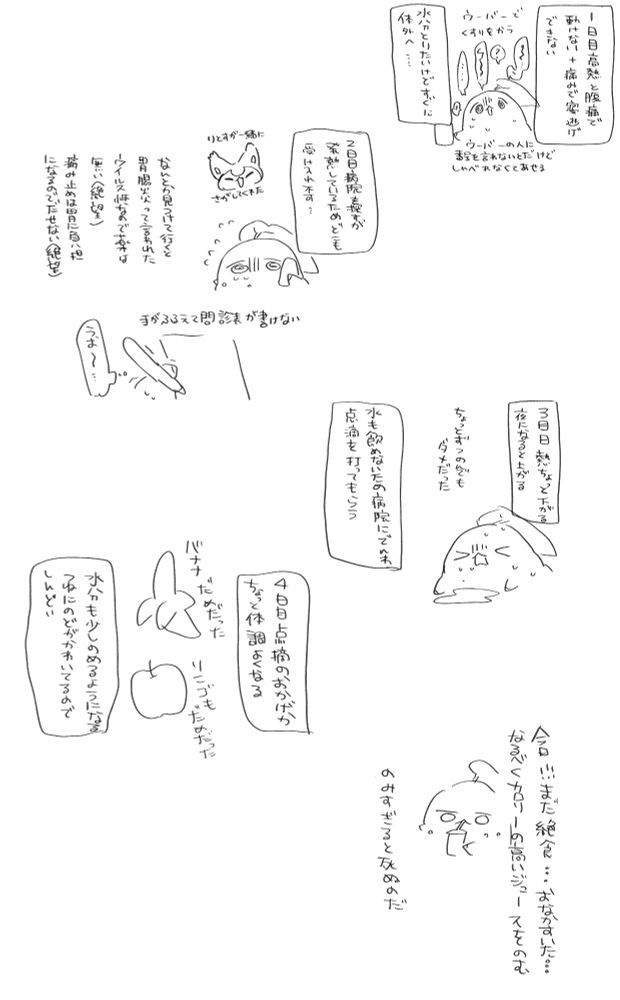 1日目高熱と腹痛で
動けない+痛みで寝逃げ
できない
ウーバーで
くすりをかう
水分とりたいけどすぐに
体外へ……
ウーバーの人に
番号を言わないとだけど
しゃべれなくてあせる
2日目病院を探すが
発熱しているためどこも
受け入れ不可…
りとすが一緒に
さがしてくれた
なんとか見つけて行くと
胃腸炎って言われた
ウイルス性なので薬は
無い(絶望)
痛み止めは胃に負い担
になるのでだせない(絶望)
手がふるえて問診表が書けない
うお〜…
3日目熱ちょっと下がる
夜になると上がる
ちょっとずつの飲でも
ダメだった
水も飲めないため病院に
点滴を打ってもらう
4日目点摘のおかげか
ちょっと体調よくなる
バナナだめだった
リンゴもだめだった
水分も少しのめるようになる
つねにのどがかわいてるので
しんどい
今日!!!まだ絶食…おなかすいた…
なるべくカロリーの高いジュースをのむ
のみすぎると死ぬのだ